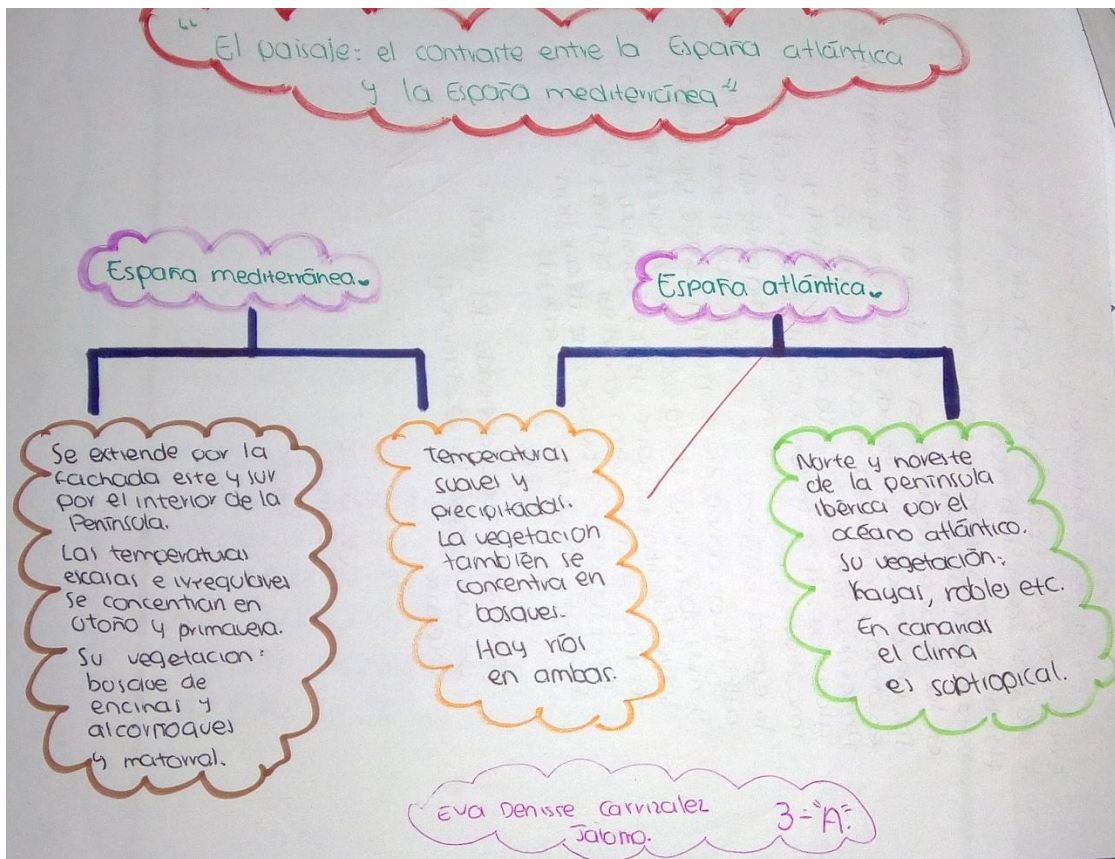 "El paisaje: el contraste entre la España atlántica
y la España mediterránea"
España mediterránea.
España atlántica.
Se extiende por la
fachada este y sur
por el interior de la
Península.
Las temperaturas
escasas e irregulares
se concentran en
otoño y primavera.
Su vegetacion:
bosque de
encinas y
alcornoques
y matorral.
Temperaturas
suaves y
precipitadas.
La vegetacion
también se
concentra en
bosques.
Hay ríos
en ambas.
Norte y noreste
de la península
ibérica por el
océano atlántico.
Su vegetación:
hayas, robles etc.
En canarias
el clima
es subtropical.
Eva Denisse Carrizalez
Jalomo.
3-"A".